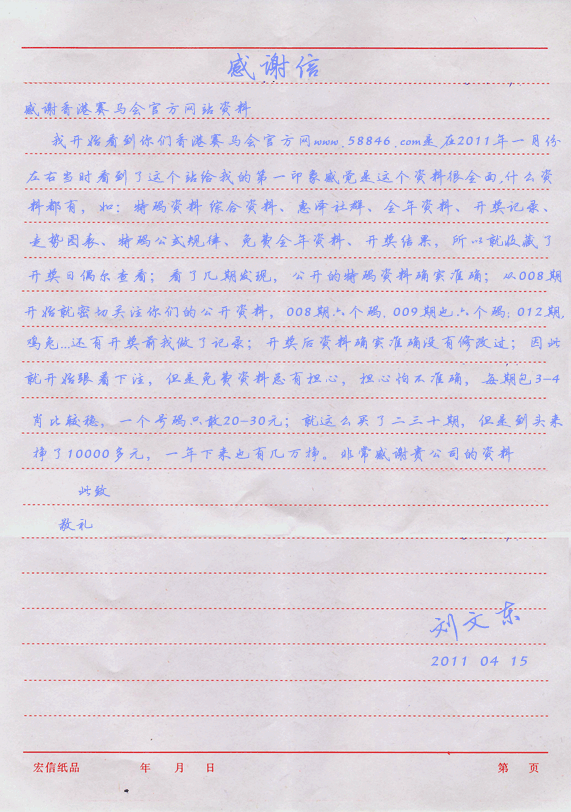 感谢信
感谢香港赛马会官方网站资料
我开始看到你们香港赛马会官方网www.58846.com是在2011年一月份
左右当时看到了这个站给我的第一印象感觉是这个资料很全面,什么资
料都有,如:特码资料综合资料、惠泽社群、全年资料、开奖记录、
走势图表、特码公式规律、免费全年资料、开奖结果,所以就收藏了
开奖日偶尔查看;看了几期发现,公开的特码资料确实准确;从008期
开始就密切关注你们的公开资料,008期六个码,009期也六个码;012期,
鸡兔...还有开奖前我做了记录;开奖后资料确实准确没有修改过;因此
就开始跟着下注,但是免费资料总有担心,担心怕不准确,每期包3-4
肖比较稳,一个号码只敢20-30元;就这么买了二三十期,但是到头来
挣了10000多元,一年下来也有几万挣。非常感谢贵公司的资料
此致
敬礼
刘文东
2011 04 15
宏信纸品 年 月 日 第 页